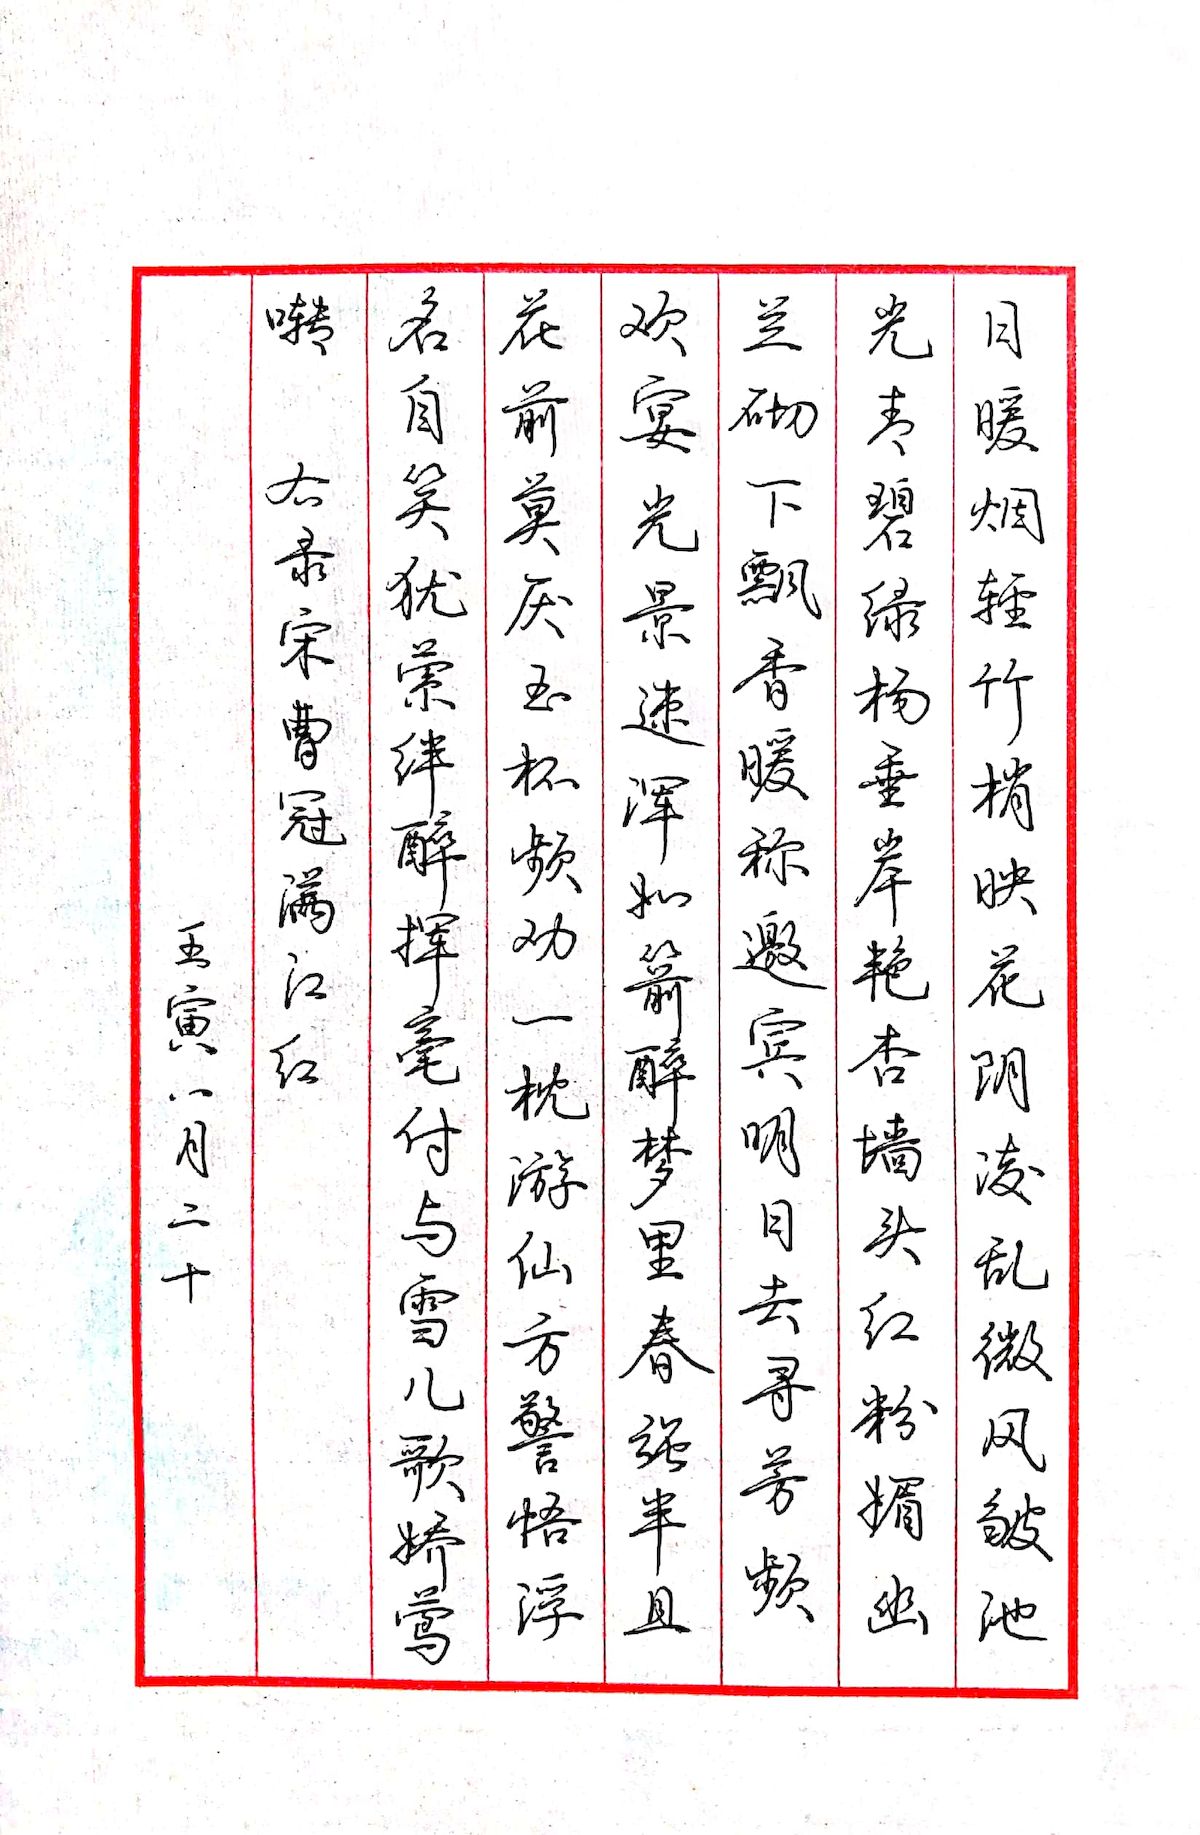 日暖烟轻竹梢映花阴凌乱微风皱池
光青碧绿杨垂岸艳杏墙头红粉媚幽
兰砌下飘香暖称邀宾明日去寻芳频
欢宴光景速浑如箭醉梦里春强半且
花前莫厌玉杯频劝一枕游仙方警悟浮
名自笑犹萦绊醉挥毫付与雪儿歌娇莺
啭 右录宋曹冠满江红
壬寅八月二十